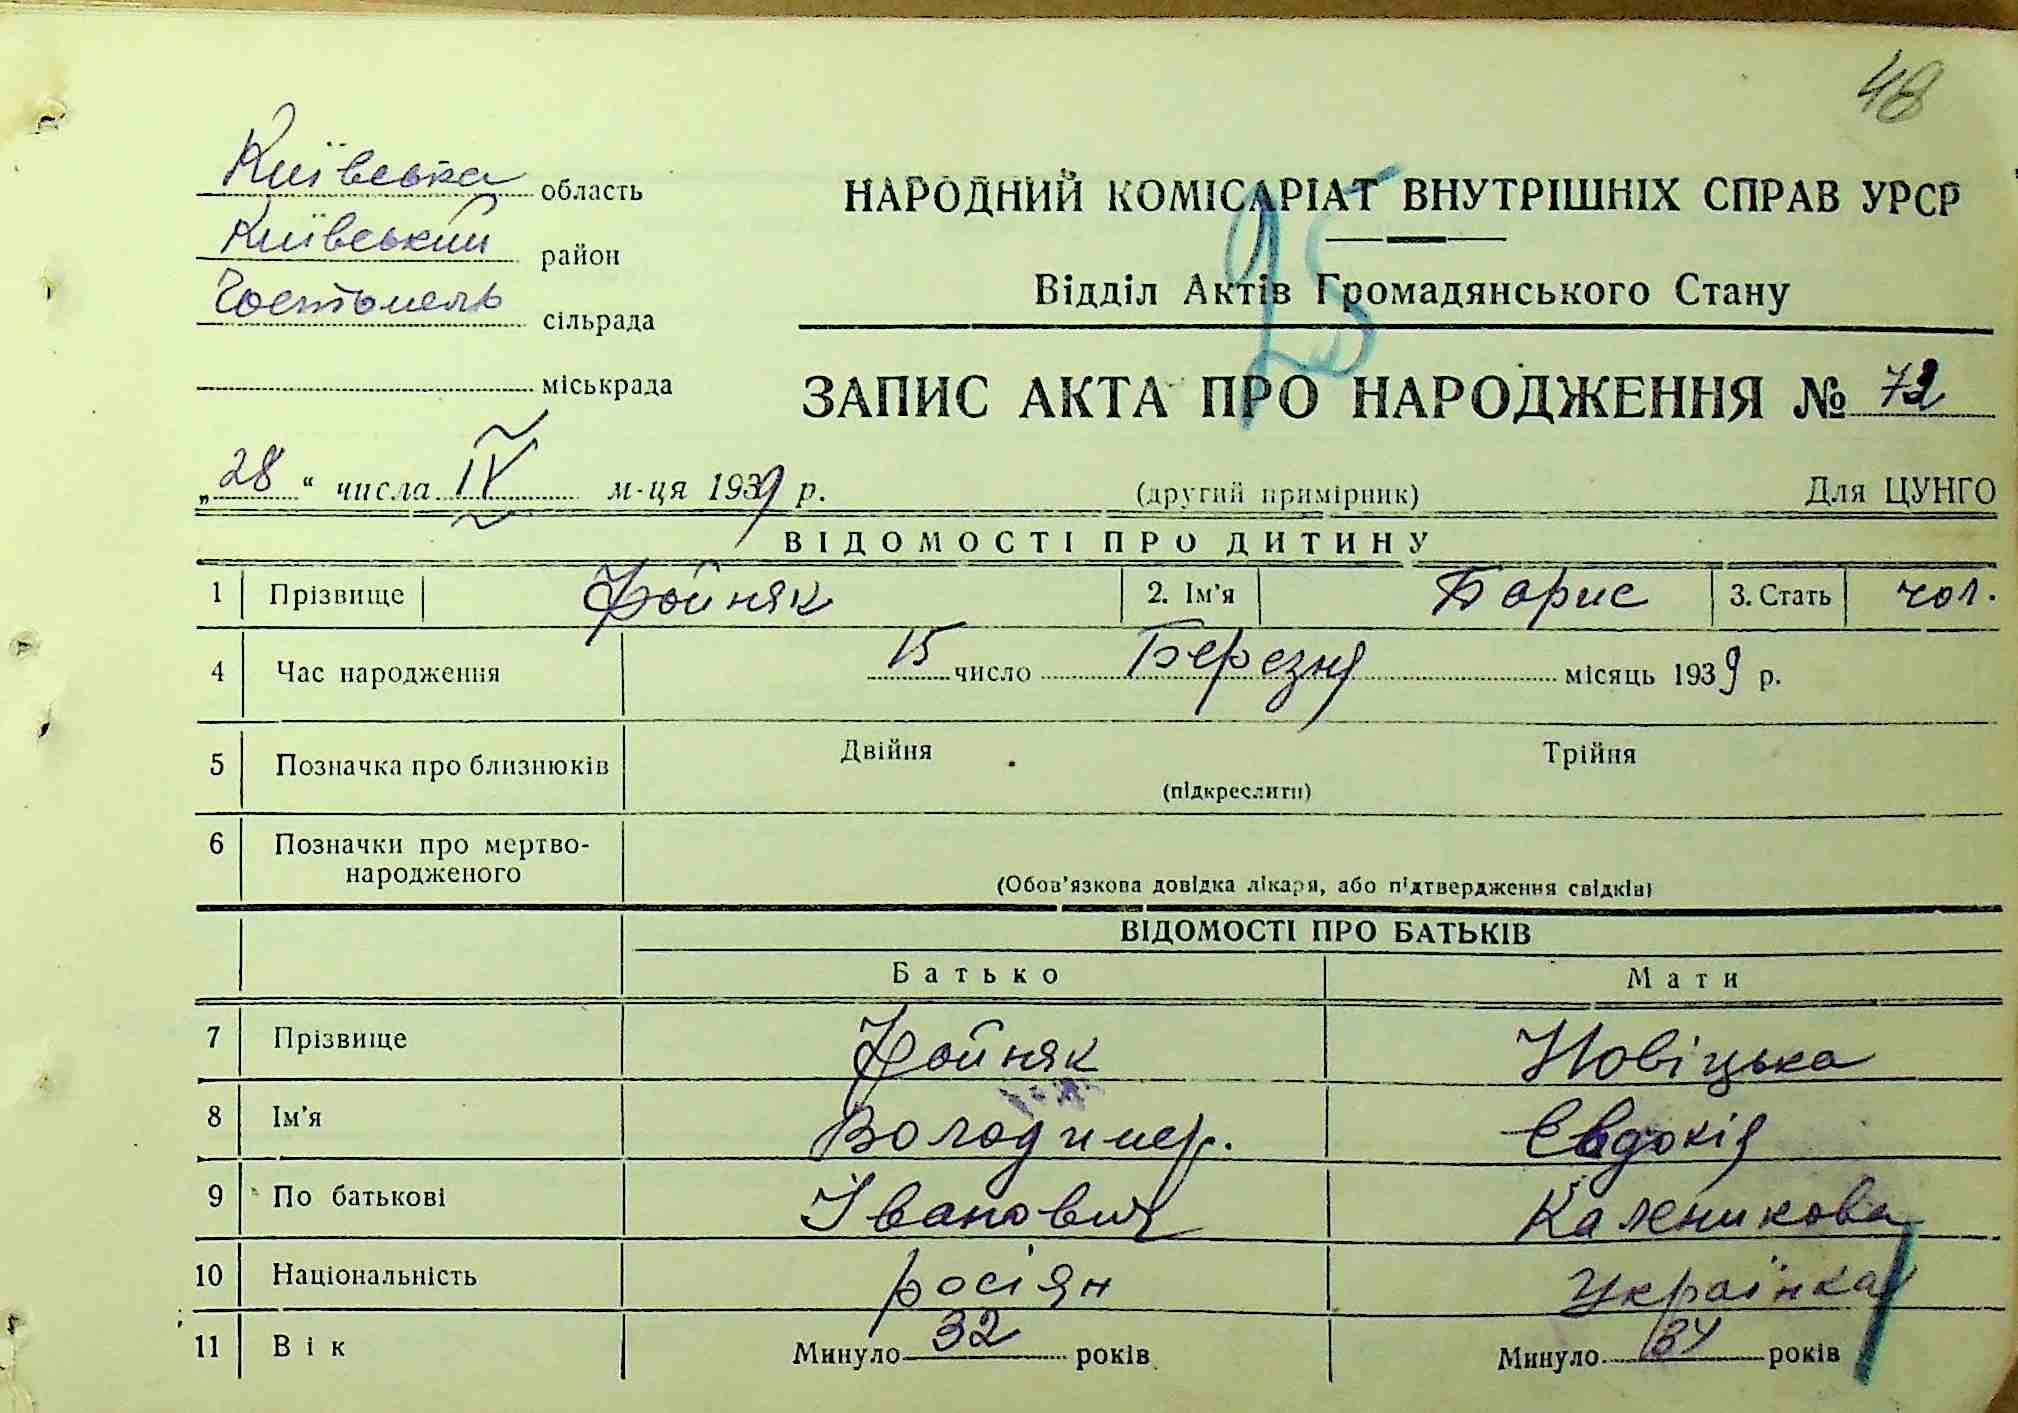 48
Київська область
Київський район
Гостомель сільрада
міськрада
НАРОДНИЙ КОМІСАРІАТ ВНУТРІШНІХ СПРАВ УРСР
Відділ Актів Громадянського Стану
25
ЗАПИС АКТА ПРО НАРОДЖЕННЯ № 72
„28“ числа IV м-ця 1939 р.
(другий примірник)
Для ЦУНГО
ВІДОМОСТІ ПРО ДИТИНУ
1 Прізвище Фойняк 2. Ім'я Борис 3. Стать чол.
4 Час народження 15 число Березня місяць 1939 р.
5 Позначка про близнюків Двійня Трійня
(підкреслити)
6 Позначки про мертво-
народженого
(Обов'язкова довідка лікаря, або підтвердження свідків)
ВІДОМОСТІ ПРО БАТЬКІВ
Батько Мати
7 Прізвище Фойняк Новіцька
8 Ім'я Володимер. Євдокія
9 По батькові Іванович Каленикова
10 Національність росіян Українка
11 Вік Минуло 32 років Минуло 34 років